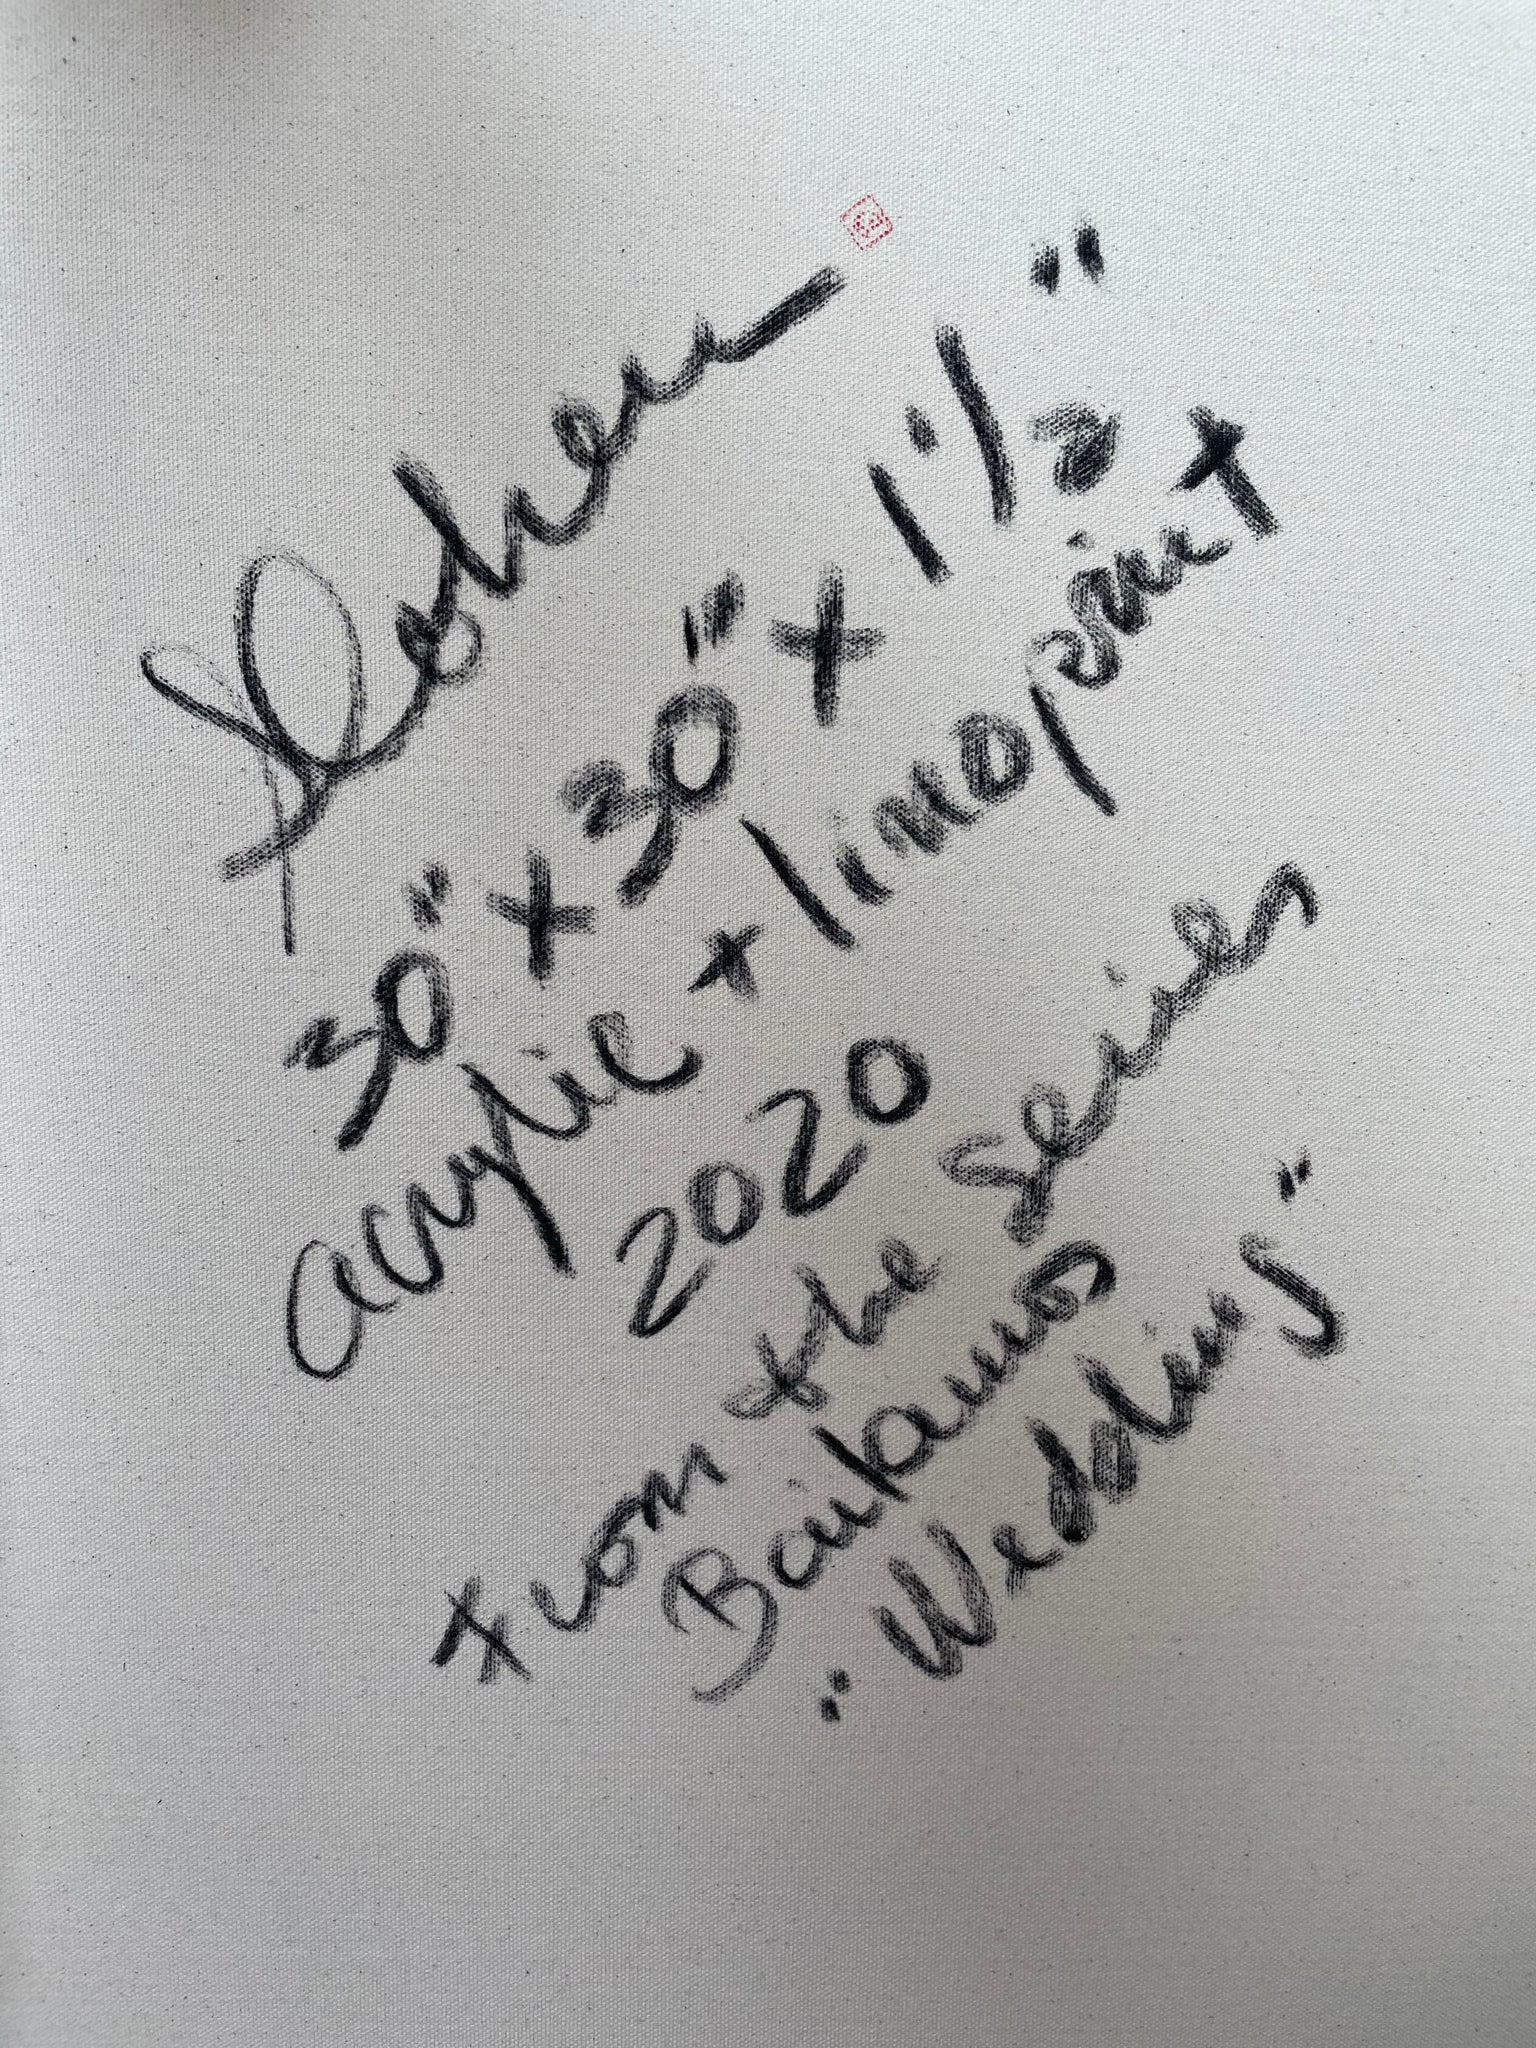 30" x 30" x 1 1/2"
acrylic + linoprint
2020
from the series
Bailamos
"Wedding"